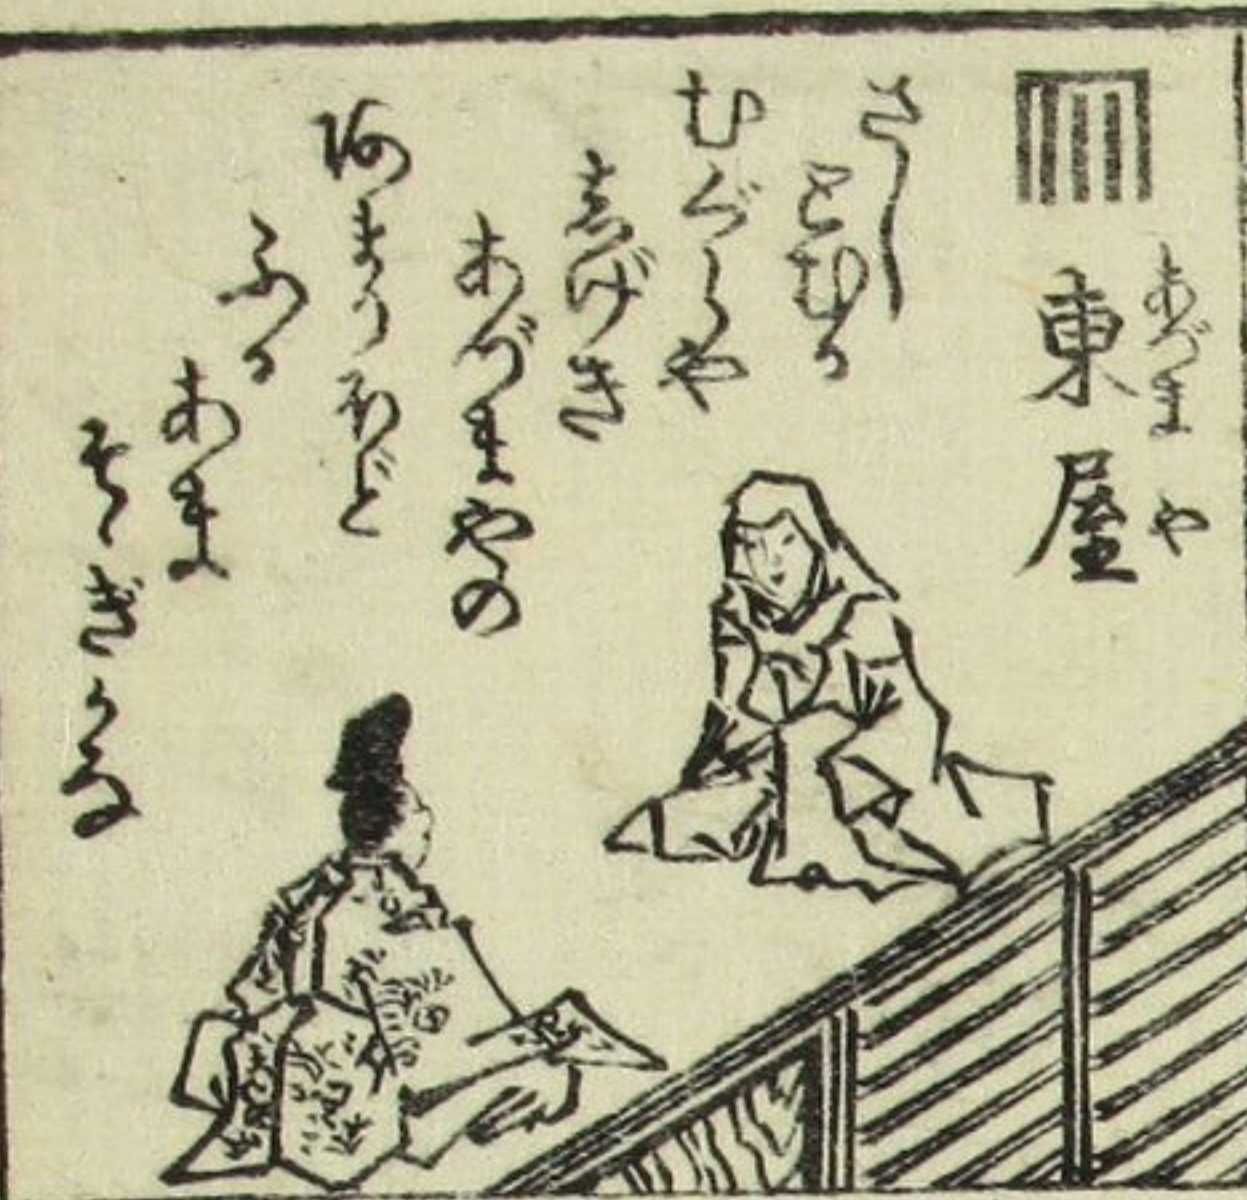 東屋
あづまや
さし
とむる
むぐらや
志げき
あづまやの
阿まりほど
ふる
あま
そゝぎかな